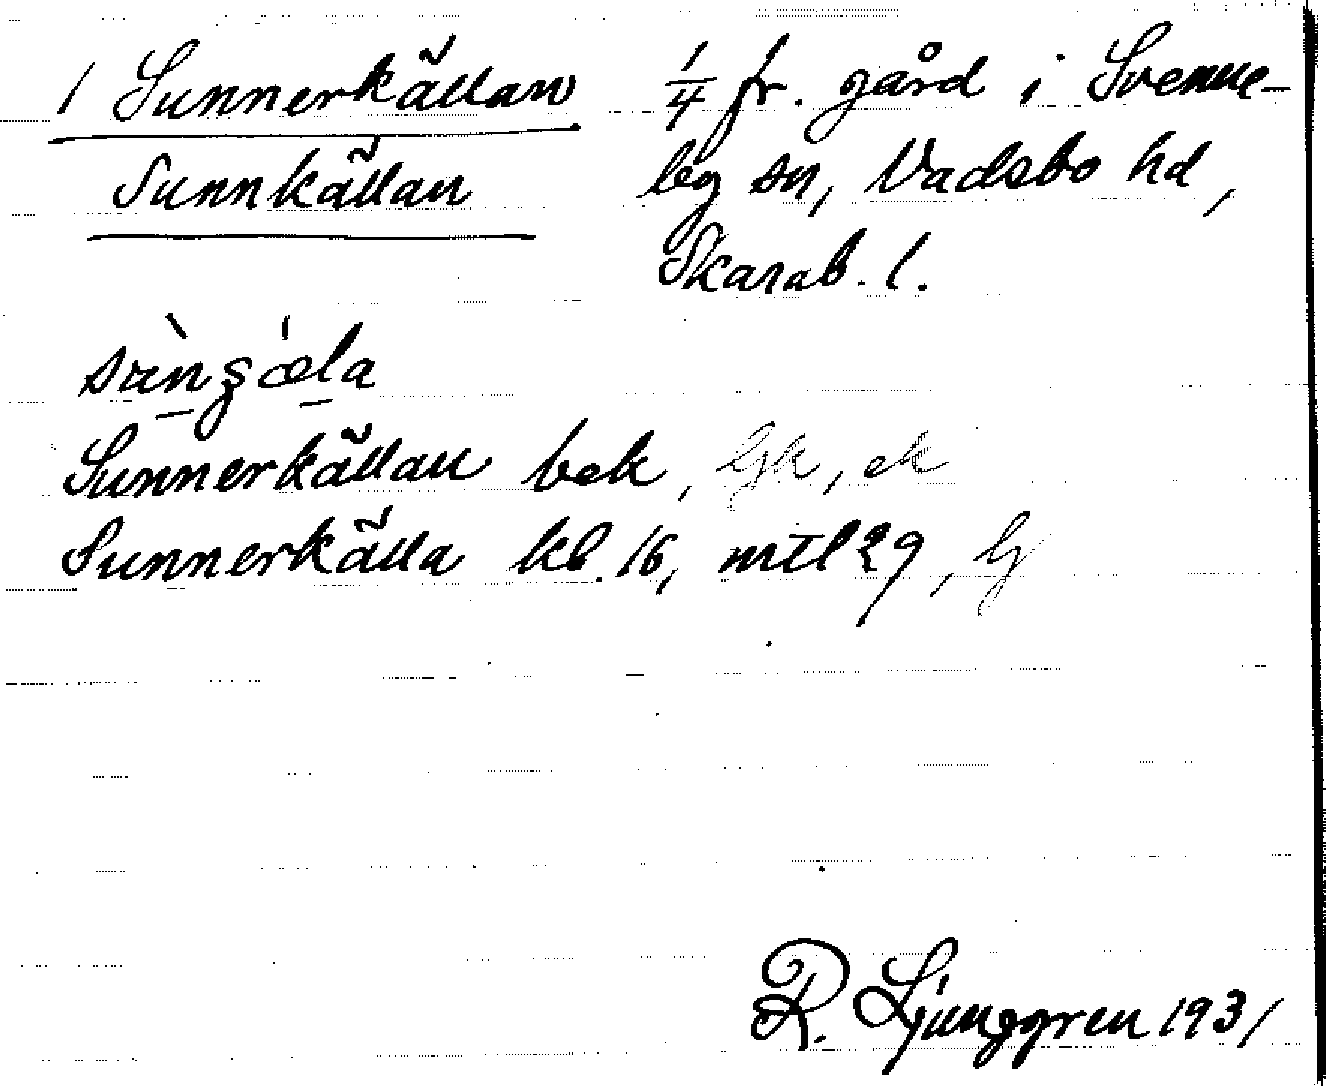 1 Sunnerkällan 1/4 fr. gård i Svenne-
Sunnkällan by sn, Vadsbo hd,
Skarab. l.
Sunnerkällan bek, Gk, ek
Sunnerkälla kb. 16, mtl 29, G
R. Ljunggren 1931